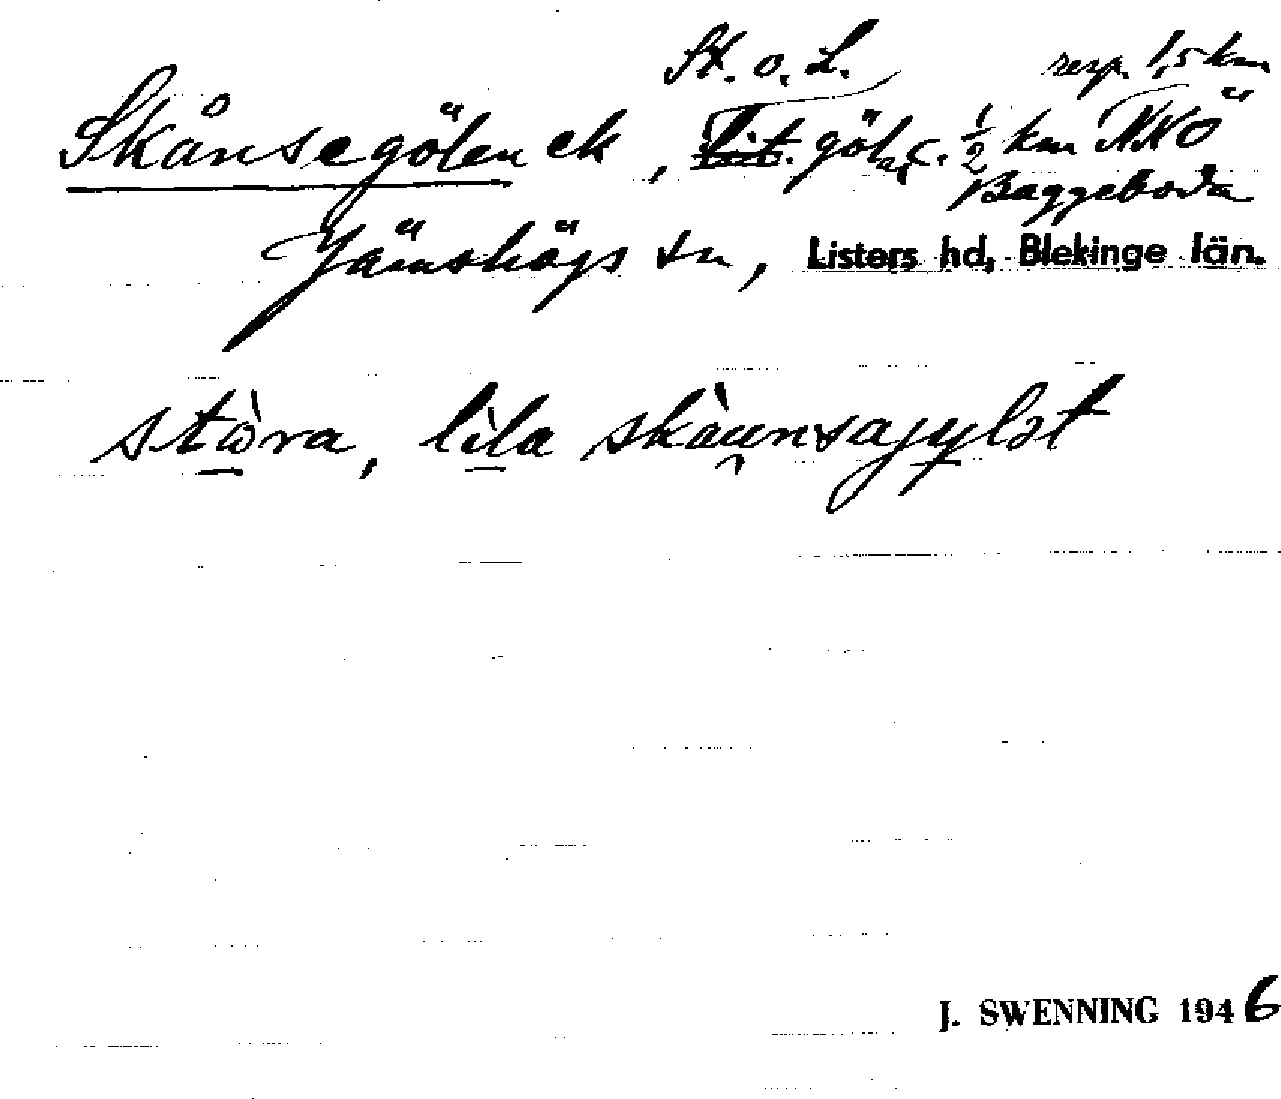 St. o. L. resp. 1,5 km
Skånsegölen ek, Lit. göl, c. ½ km NNÖ
Baggeboda
Jämshögs sn, Listers hd, Blekinge län.
stòra, lìla skàunsagylət
J. SWENNING 1946